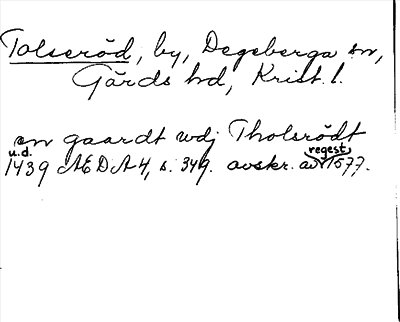 Tolseröd, by, Degeberga sn,
Gärds hd, Krist. l.
en gaardt udj Tholsrödt
u.d.
regest
1439 ÆDA 4, s. 349. avskr. av 1577.